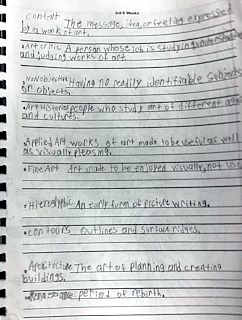 3rd 6 Weeks
Content The message, idea, or feeling expressed
by a work of art.
• Art critic A person whose job is studying, understanding
and judging works of art.
• Nonobjective Having no readily identifiable subjects
or objects.
• Art Historian people who study art of different
and cultures.
• Applied Art works of art made to be useful as well
as visually pleasing.
• Fine Art Art made to be enjoyed visually, not use
• Hieroglyphic An early form of picture writing.
• contours outlines and surface ridges.
• Architecture The art of planning and creating
buildings.
period of rebirth.